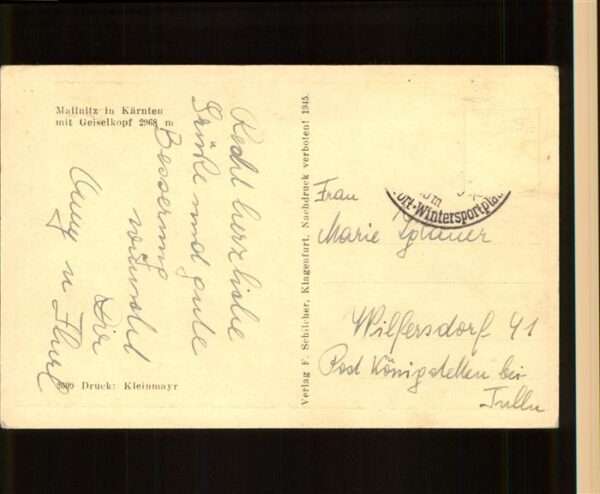 Mallnitz in Kärnten
mit Geiselkopf 2968 m
Recht herzliche
Grüße und gute
Besserung
wünscht
Dir
u
Druck: Kleinmayr
Verlag F. Schilcher, Klagenfurt. Nachdruck verboten! 1945.
ort-Wintersportplatz
Frau
Marie
Wilfersdorf 41
Post Königstetten bei
Tulln